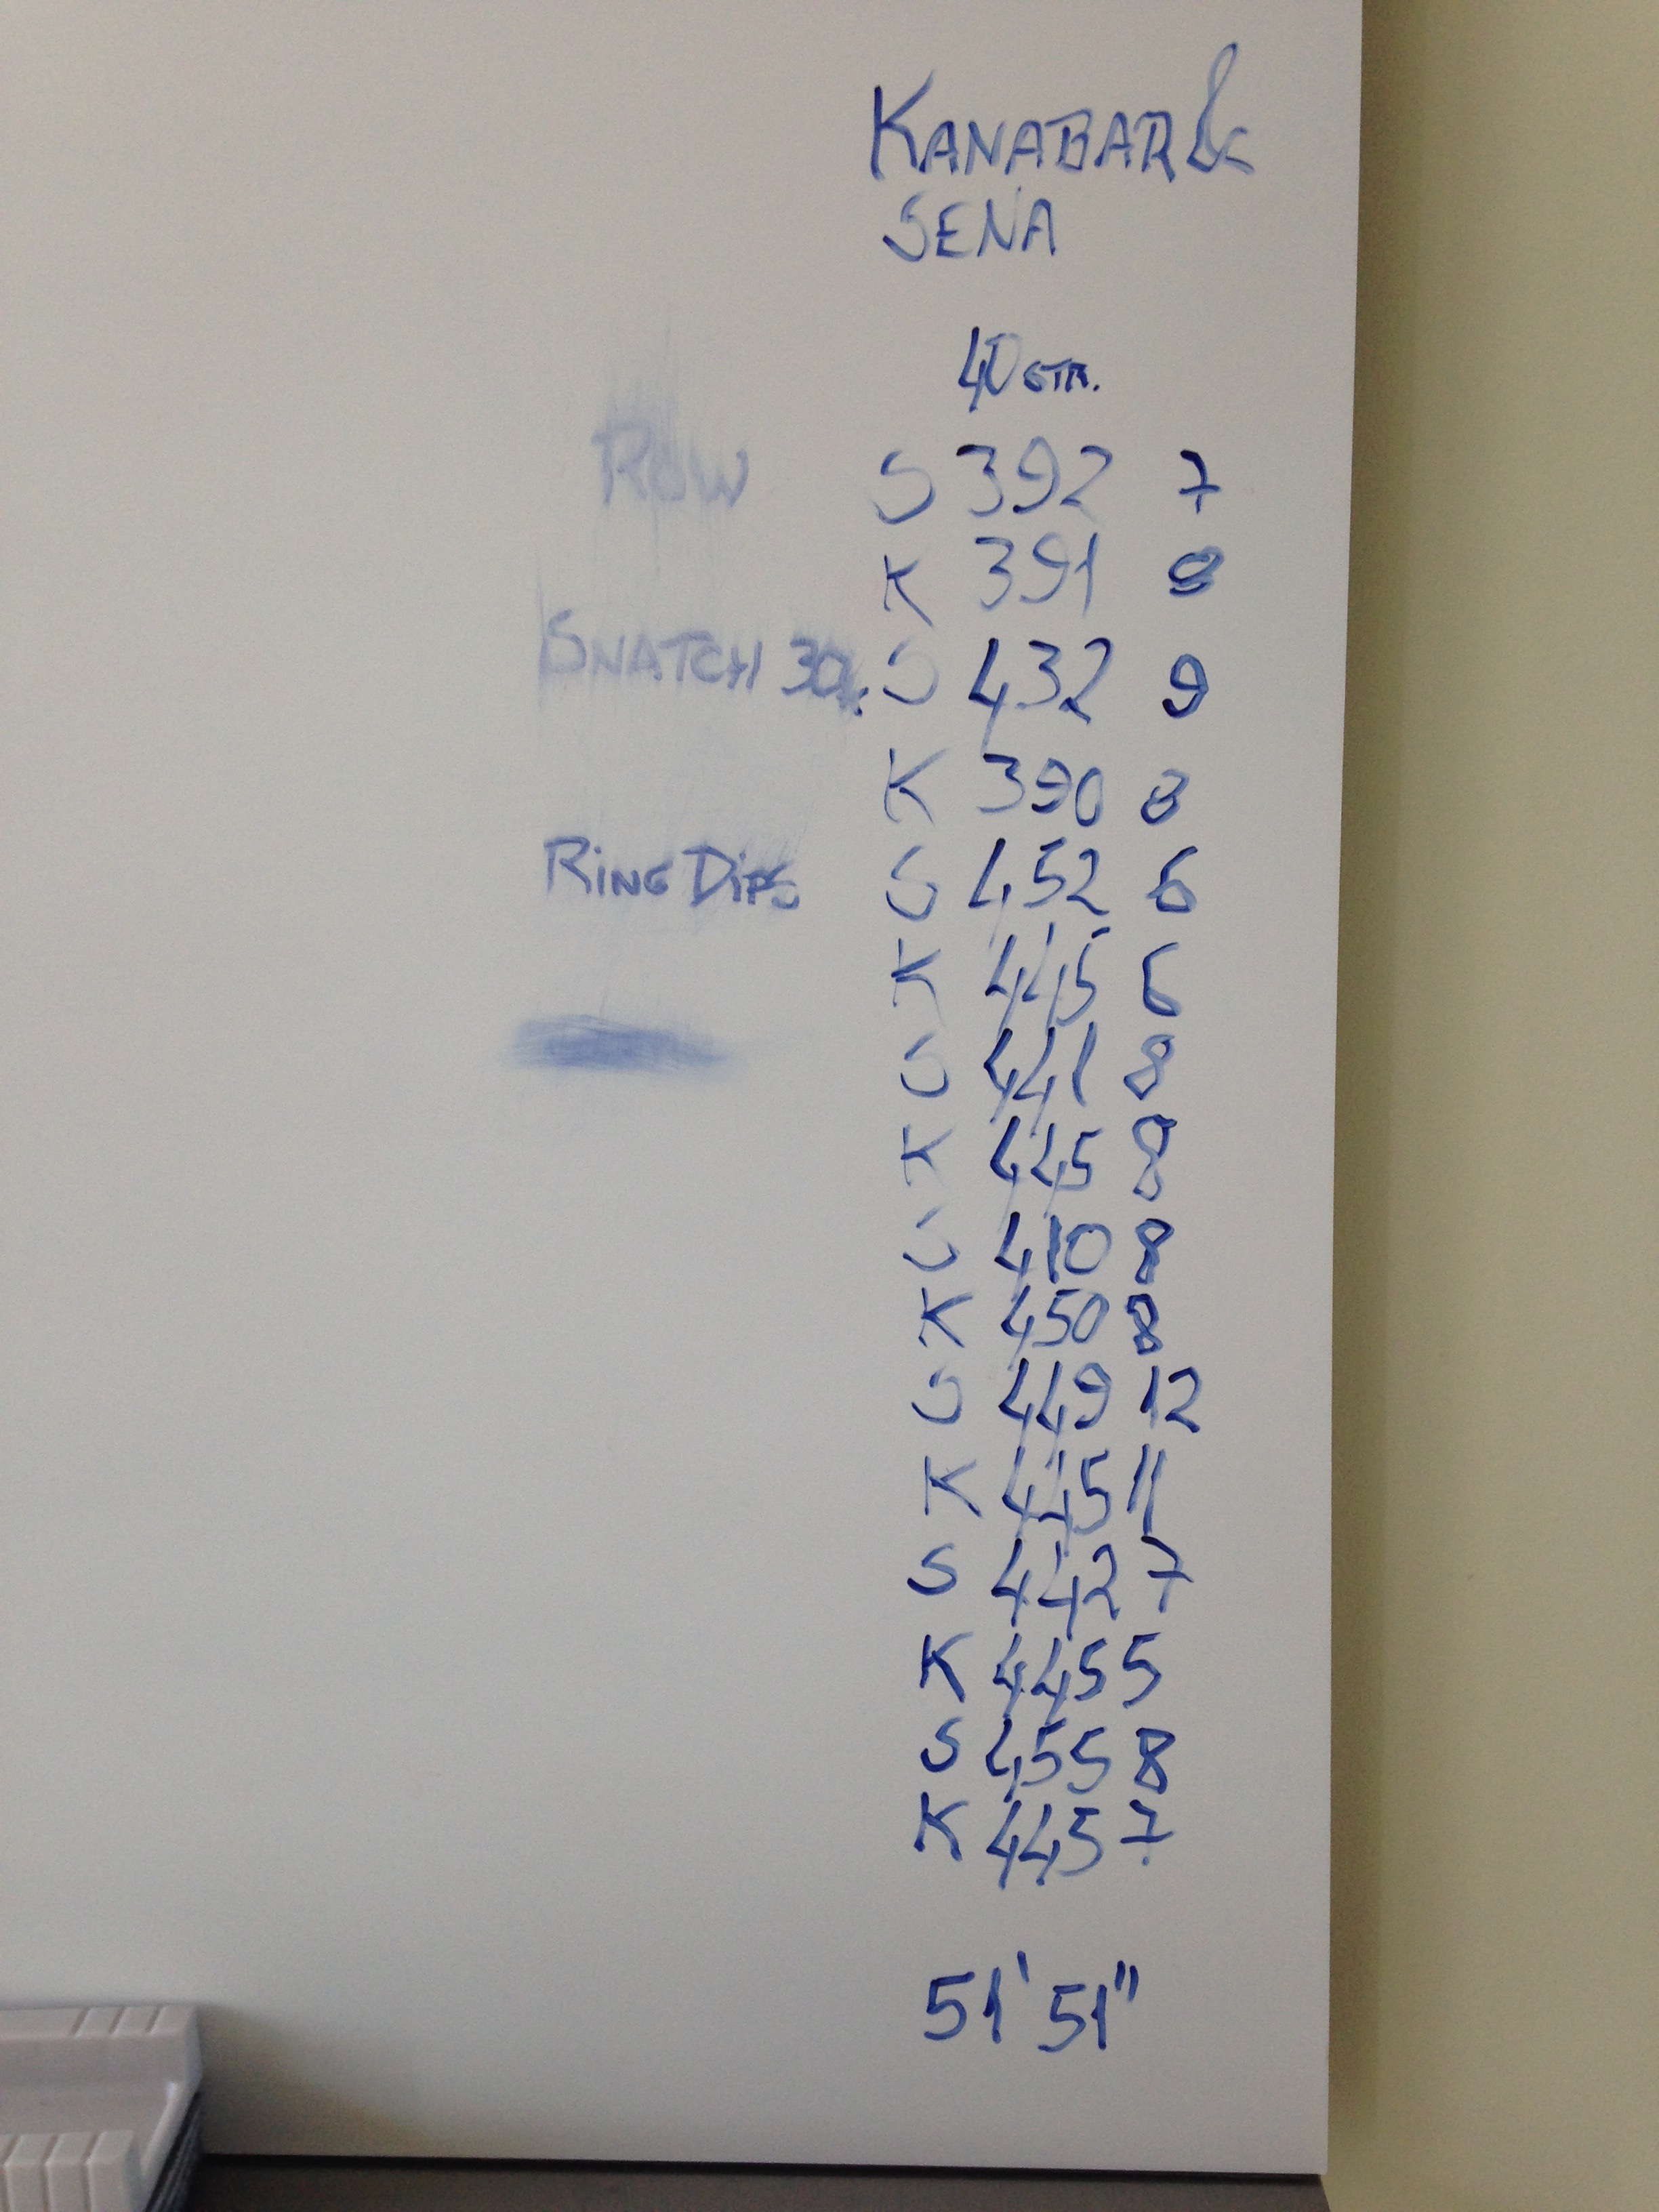 KANABAR &
SENA
40 STR.
ROW S 392 7
K 391 8
SNATCH 30k. S 432 9
K 390 8
RING DIPS S 452 6
K 445 6
S 441 8
K 445 8
S 410 8
K 450 8
S 449 12
K 445 11
S 442 7
K 445 5
S 455 8
K 445 7
51' 51"